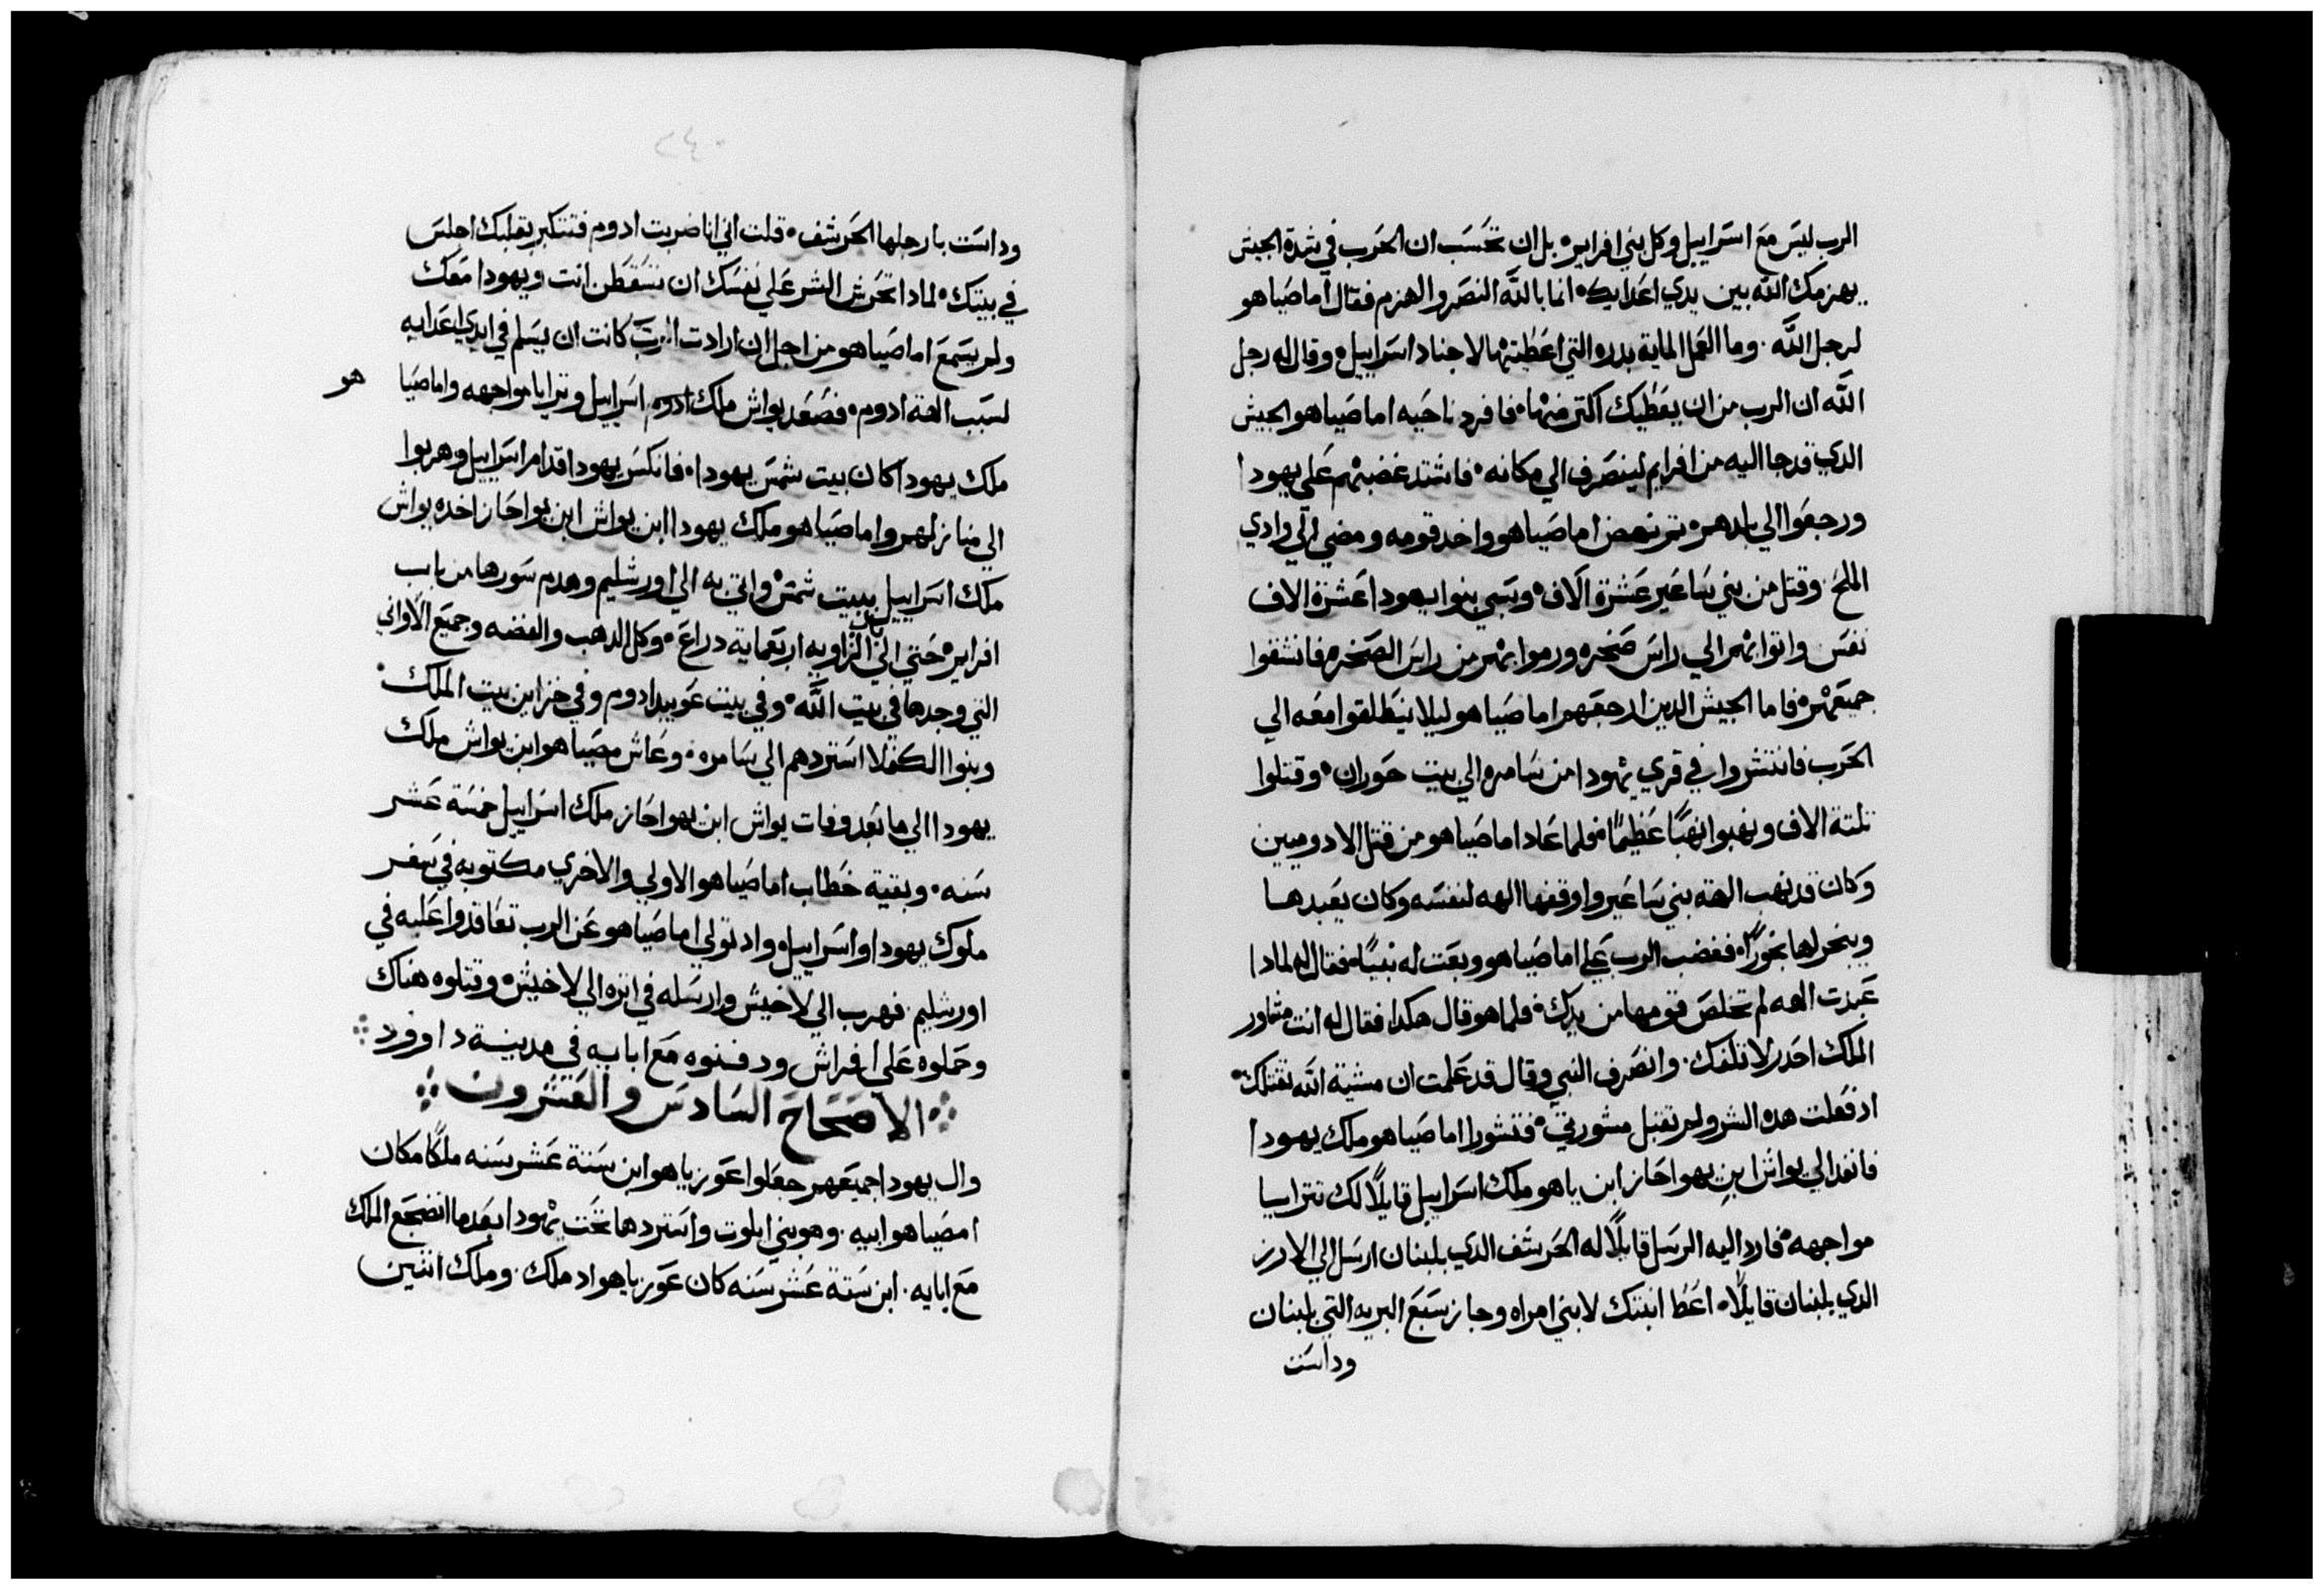 الرب ليس مع اسراييل وكل بني افرايم بل ان تحسب ان الحرب في شدة الجيش
يهزمك الله بين يدي اعدايك انما بالله النصر والهزم فقال اماصياهو
لرجل الله وما العمل الماية بدره التي اعطيتها لاجناد اسراييل وقال له رجل
الله ان الرب من ان يعطيك اكتر منها فافرد ناحيه اماصياهو الجيش
الدي قد جا اليه من افرايم لينصرف الي مكانه فاشتد غضبهم علي يهودا
ورجعوا الي بلدهم تم نهض اماصياهو واخد قومه ومضي الي وادي
الملح وقتل من بني ساعير عشرة الاف وسبي بنوا يهودا عشرة الاف
نفس واتوا بهم الي راس صخره ورموا بهم من راس الصخره فانشقوا
جميعهم فاما الجيش الدين ارجعهم اماصياهو ليلا ينطلقوا معه الي
الحرب فانتشروا في قري يهودا من سامره الي بيت حوران وقتلوا
تلتة الاف ونهبوا نهبًا عظيمًا فلما عاد اماصياهو من قتل الادوميين
وكان قد نهب الهة بني ساعير واوقفها الهه لنفسه وكان يعبدها
ويبخر لها بخورًا فغضب الرب علي اماصياهو وبعت له نبيًا فقال له لمادا
عبدت الهه لم تخلص قومها من يدك فلما هو قال هكدا فقال له انت مشاور
الملك احدر لا نلفك وانصرف النبي وقال قد علمت ان مشية الله تقتلك
اد فعلت هده الشر ولم تقبل مشورتي فتشورا اماصياهو ملك يهودا
فانفد الي يواش ابن يهواحاز ابن ياهو ملك اسراييل قايلًا لك نترايا
مواجهه فارد اليه الرسل قايلًا له الحرشف الدي بلبنان ارسل الي الارز
الدي بلبنان قايلًا اعط ابنتك لابني امراه وجاز سبع البريه التي بلبنان
وداست
٢٤٠
وداست بارجلها الحرشف قلت اني انا ضربت ادوم فتتكبر بقلبك اجلس
في بيتك لمادا تحرش الشر علي نفسك ان تسقطن انت ويهودا معك
ولم يسمع اماصياهو من اجل ان ارادت الرب كانت ان يسلم في ايدي اعدايه
لسبب الهة ادوم فصعد يواش ملك ادوم اسراييل وترايا مواجهه واماصيا هو
ملك يهودا كان بيت شمس يهودا فانكسر يهودا قدام اسراييل وهربوا
الي منازلهم واماصياهو ملك يهودا ابن يواش ابن يواحاز اخده يواش
ملك اسراييل ببيت شمس واتي به الي اورشليم وهدم سورها من باب
افرايم حتي الي باب الزاويه اربعماية دراع وكل الدهب والفضه وجميع الاواني
التي وجدها في بيت الله وفي بيت عوبيد ادوم وفي خزاين بيت الملك
وبنوا الكفلا استردهم الي سامره وعاش مصياهو ابن يواش ملك
يهودا الي ما بعد وفات يواش ابن يهواحاز ملك اسراييل خمسة عشر
سنه وبقية خطاب اماصياهو الاولي والاخري مكتوبه في سفر
ملوك يهودا واسراييل واد تولي اماصياهو عن الرب تعاقدوا عليه في
اورشليم فهرب الي لاخيش وارسله في اتره الي لاخيش وقتلوه هناك
وحملوه علي افراش ودفنوه مع ابايه في مدينة داوورد
الاصحاح السادس والعشرون
وال يهودا جميعهم جعلوا عوزياهو ابن ستة عشر سنه ملكًا مكان
امصياهو ابيه وهو بني ايلوت واستردها تحت يهودا بعدما انضجع الملك
مع ابايه ابن ستة عشر سنه كان عوزياهو اد ملك وملك اتنين